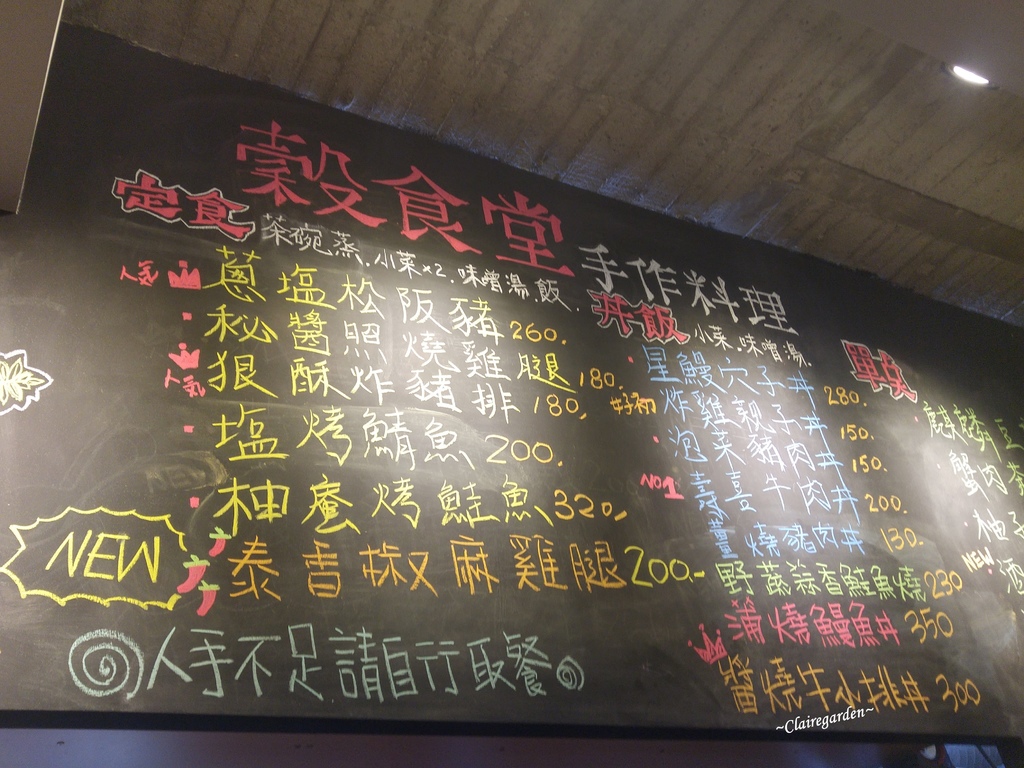 穀食堂
手作料理
定食
茶碗蒸.小菜x2.味噌湯.飯
人氣
蔥塩松阪豬 260.
秘醬照燒雞腿 180.
人氣
狠酥炸豬排 180,
塩烤鯖魚 200.
柚庵烤鮭魚 320,
NEW
泰香椒麻雞腿 200-
@人手不足請自行取餐@
丼飯
小菜.味噌湯
星鰻穴子丼 280.
炸雞親子丼 150.
泡菜豬肉丼 150.
NO1
壽喜牛肉丼 200.
燒豬肉丼 130.
野蔬蒜香鮭魚燒 230
蒲燒鰻魚丼 350
醬燒牛小排丼 300
單點
蟹肉
柚子
NEW
酒
~Clairegarden~